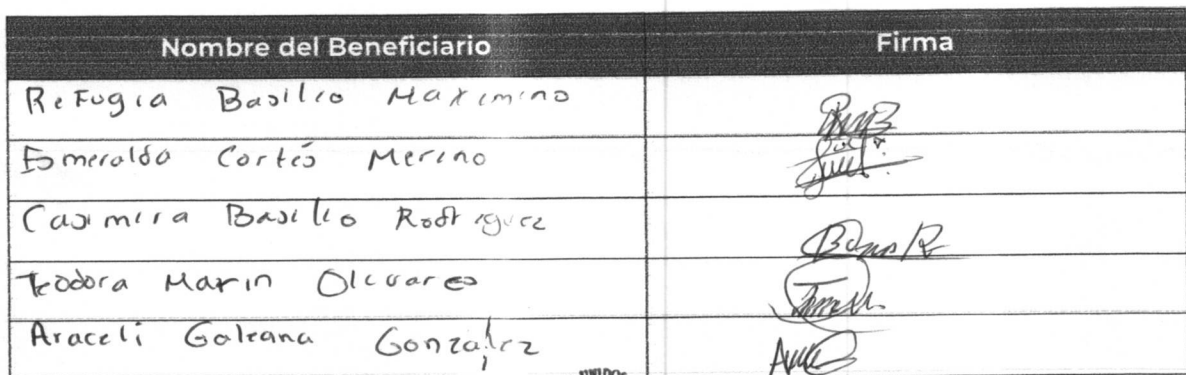 Nombre del Beneficiario Firma
Refugia Basilio Maximino
Esmeralda Cortés Merino
Casimira Basilio Rodriguez
Teodora Marin Olivares
Araceli Galeana González